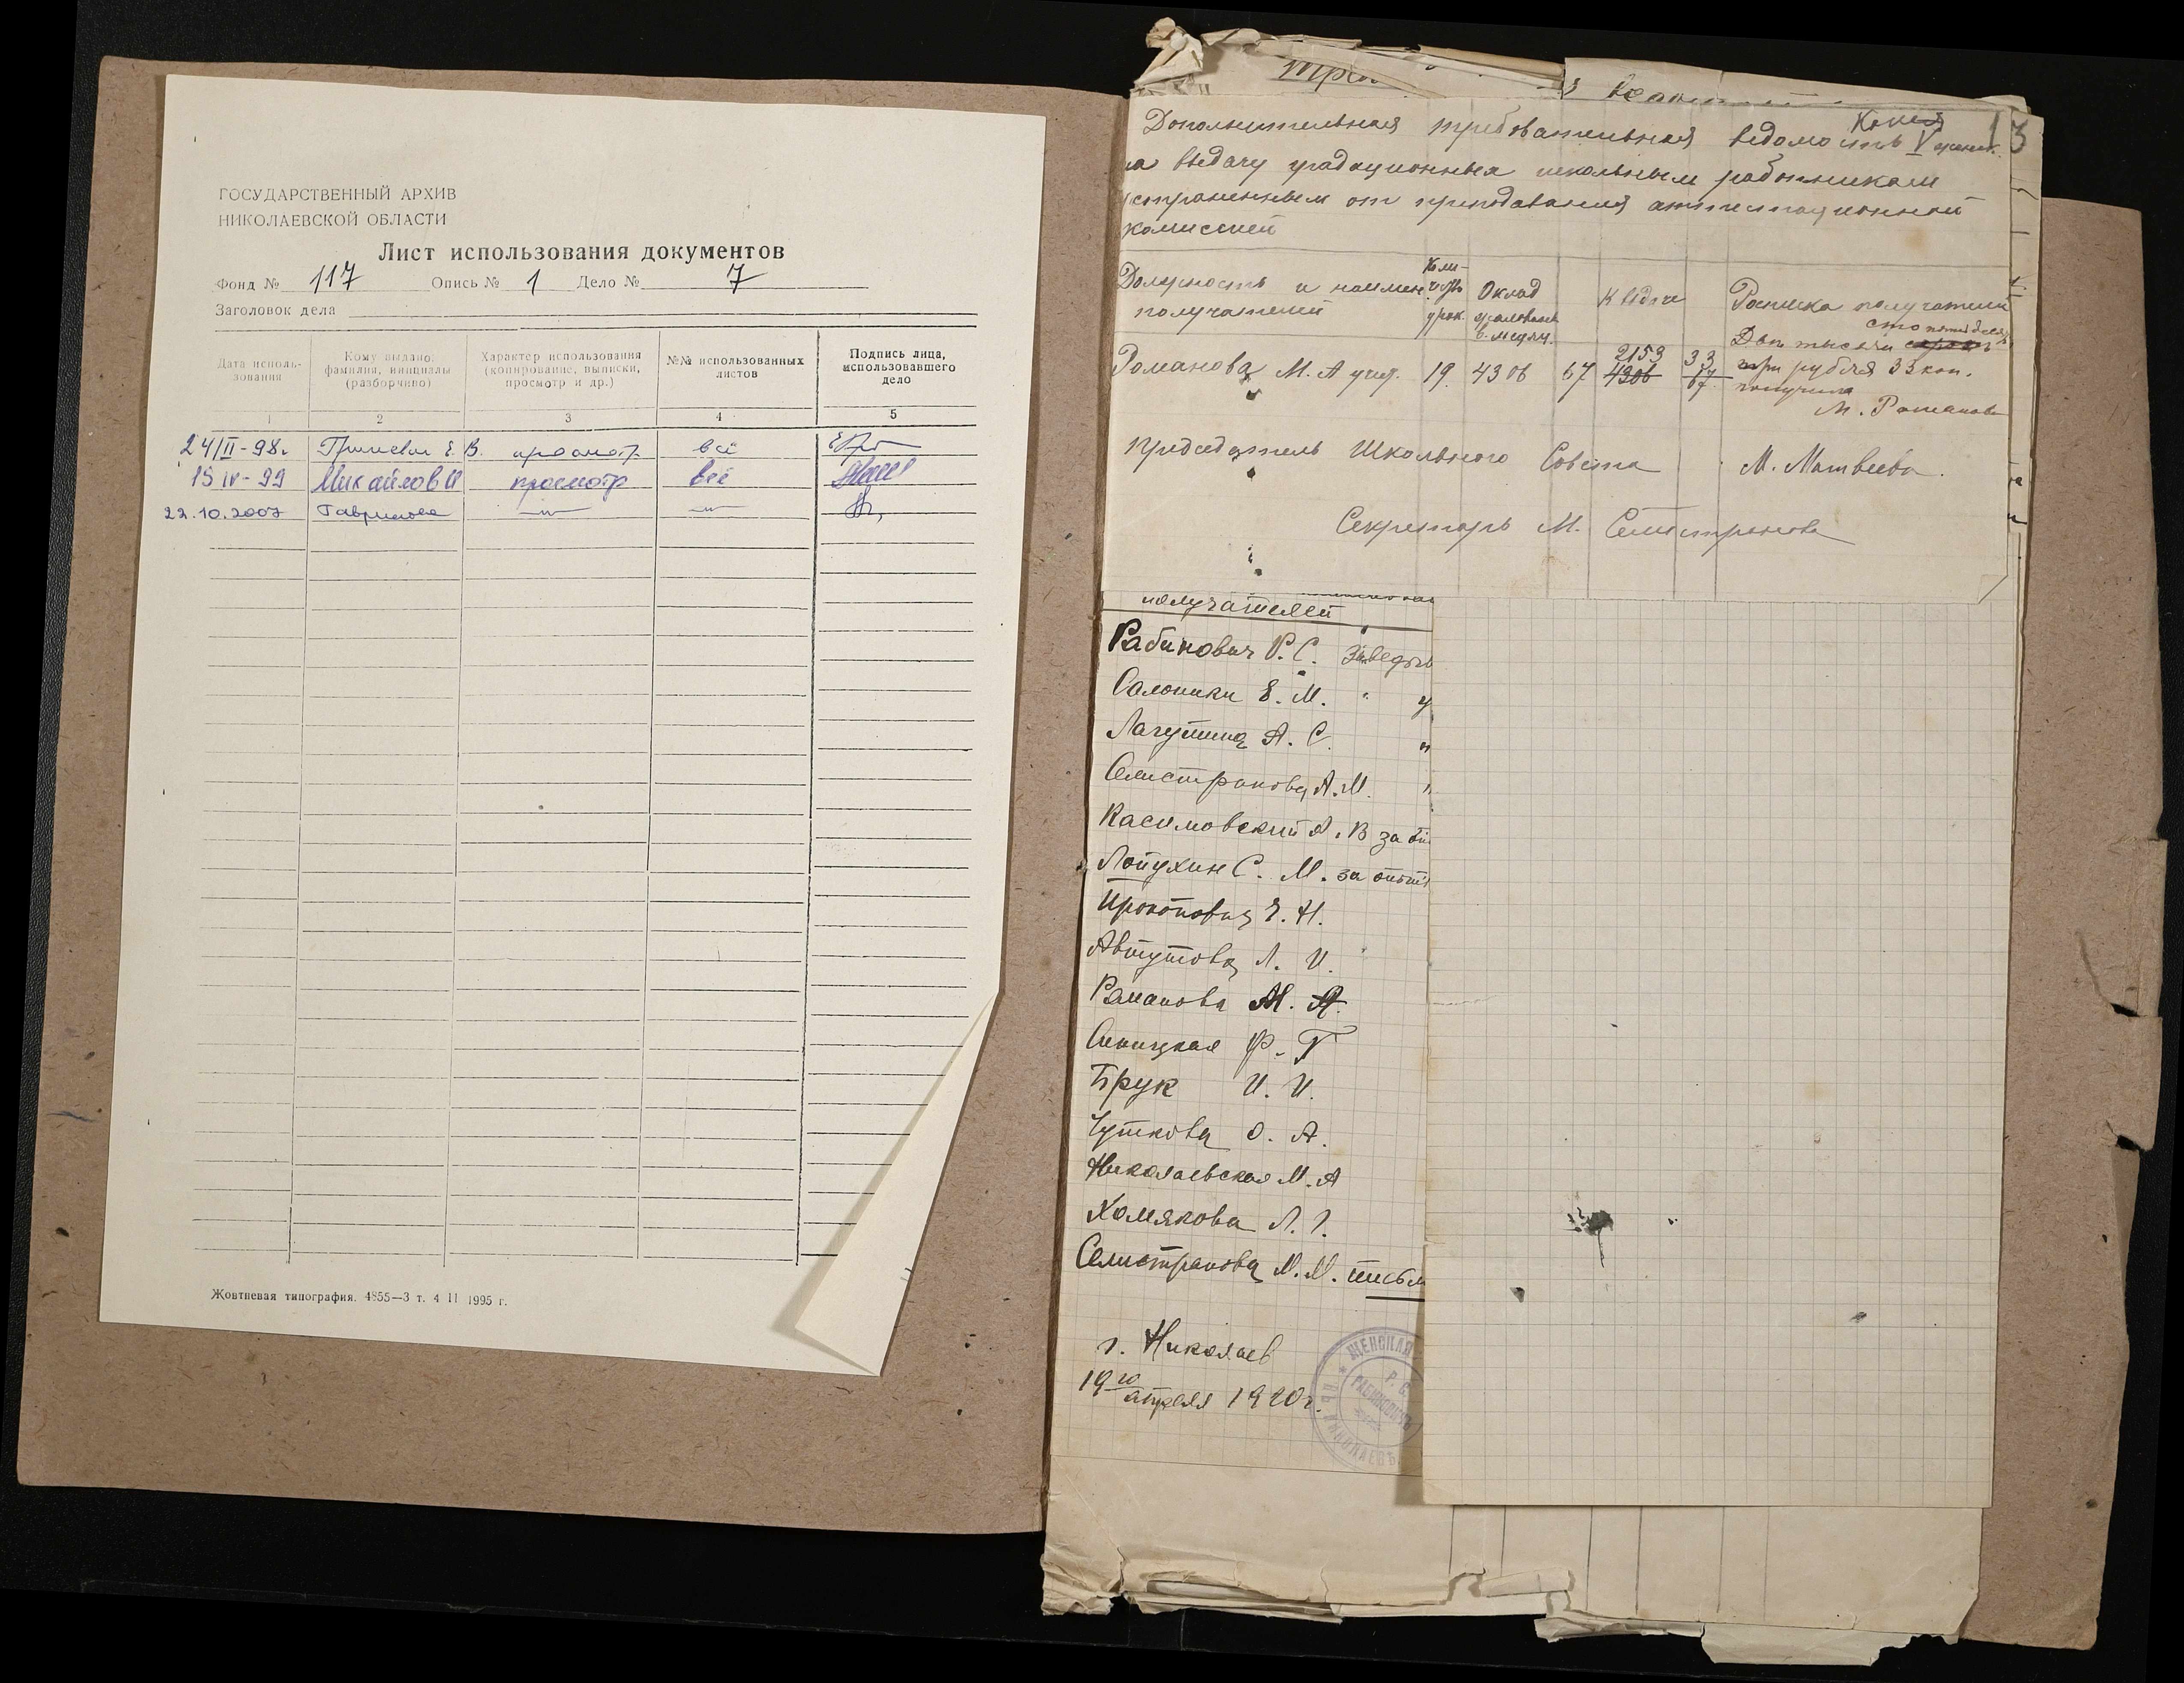 ГОСУДАРСТВЕННЫЙ АРХИВ
НИКОЛАЕВСКОЙ ОБЛАСТИ
Лист использования документов
Фонд № 117 Опись № 1 Дело № 7
Заголовок дела
Дата исполь-
зования
Кому выдано,
фамилия, инициалы
(разборчиво)
Характер использования
(копирование, выписки,
просмотр и др.)
№№ использованных
листов
Подпись лица,
использовавшего
дело
1 2 3 4 5
24/II-98г. Е. В. просмотр всё
15 IV-99 Михайлов И просмотр всё
22.10.2007 Гаврилова —"— —"—
Жовтневая типография. 4855—3 т. 4 II 1995 г.
Копия
13
Дополнительная требовательная ведомость V
на выдачу градационных школьным работникам
устраненным от преподавания аттестационной
комиссией
Должность и наимен.
получателей
Коли-
чество
урок.
Оклад
жалованья
в месяц.
К выдаче
Росписка получателей
Романова М. А учит. 19. 4306 67 2153 33
4306 67
сто пятьдесят
Две тысячи сорок
три рубля 33 коп.
получила
М. Романова
Председатель Школьного Совета М. Матвеева.
Секретарь М. Селистранова
получателей
Рабинович Р. С. Заведыв
Салоники Е. М. " у
Лагутина А. С. "
Селистранова А. М. "
Касимовский А. В за
Лопухин С. М. за
Прокопович Е. Н.
Автутова Л. И.
Раманова М. А.
Синицкая Ф. Г
Брук И. И.
Чуткова О. А.
Николаевская М. А
Хомякова Л. Г.
Селистранова М. М. письм
г. Николаев
19го апреля 1920г.
ЖЕНСКАЯ
Р. С.
РАБИНОВИЧЪ
НИКОЛАЕВЪ